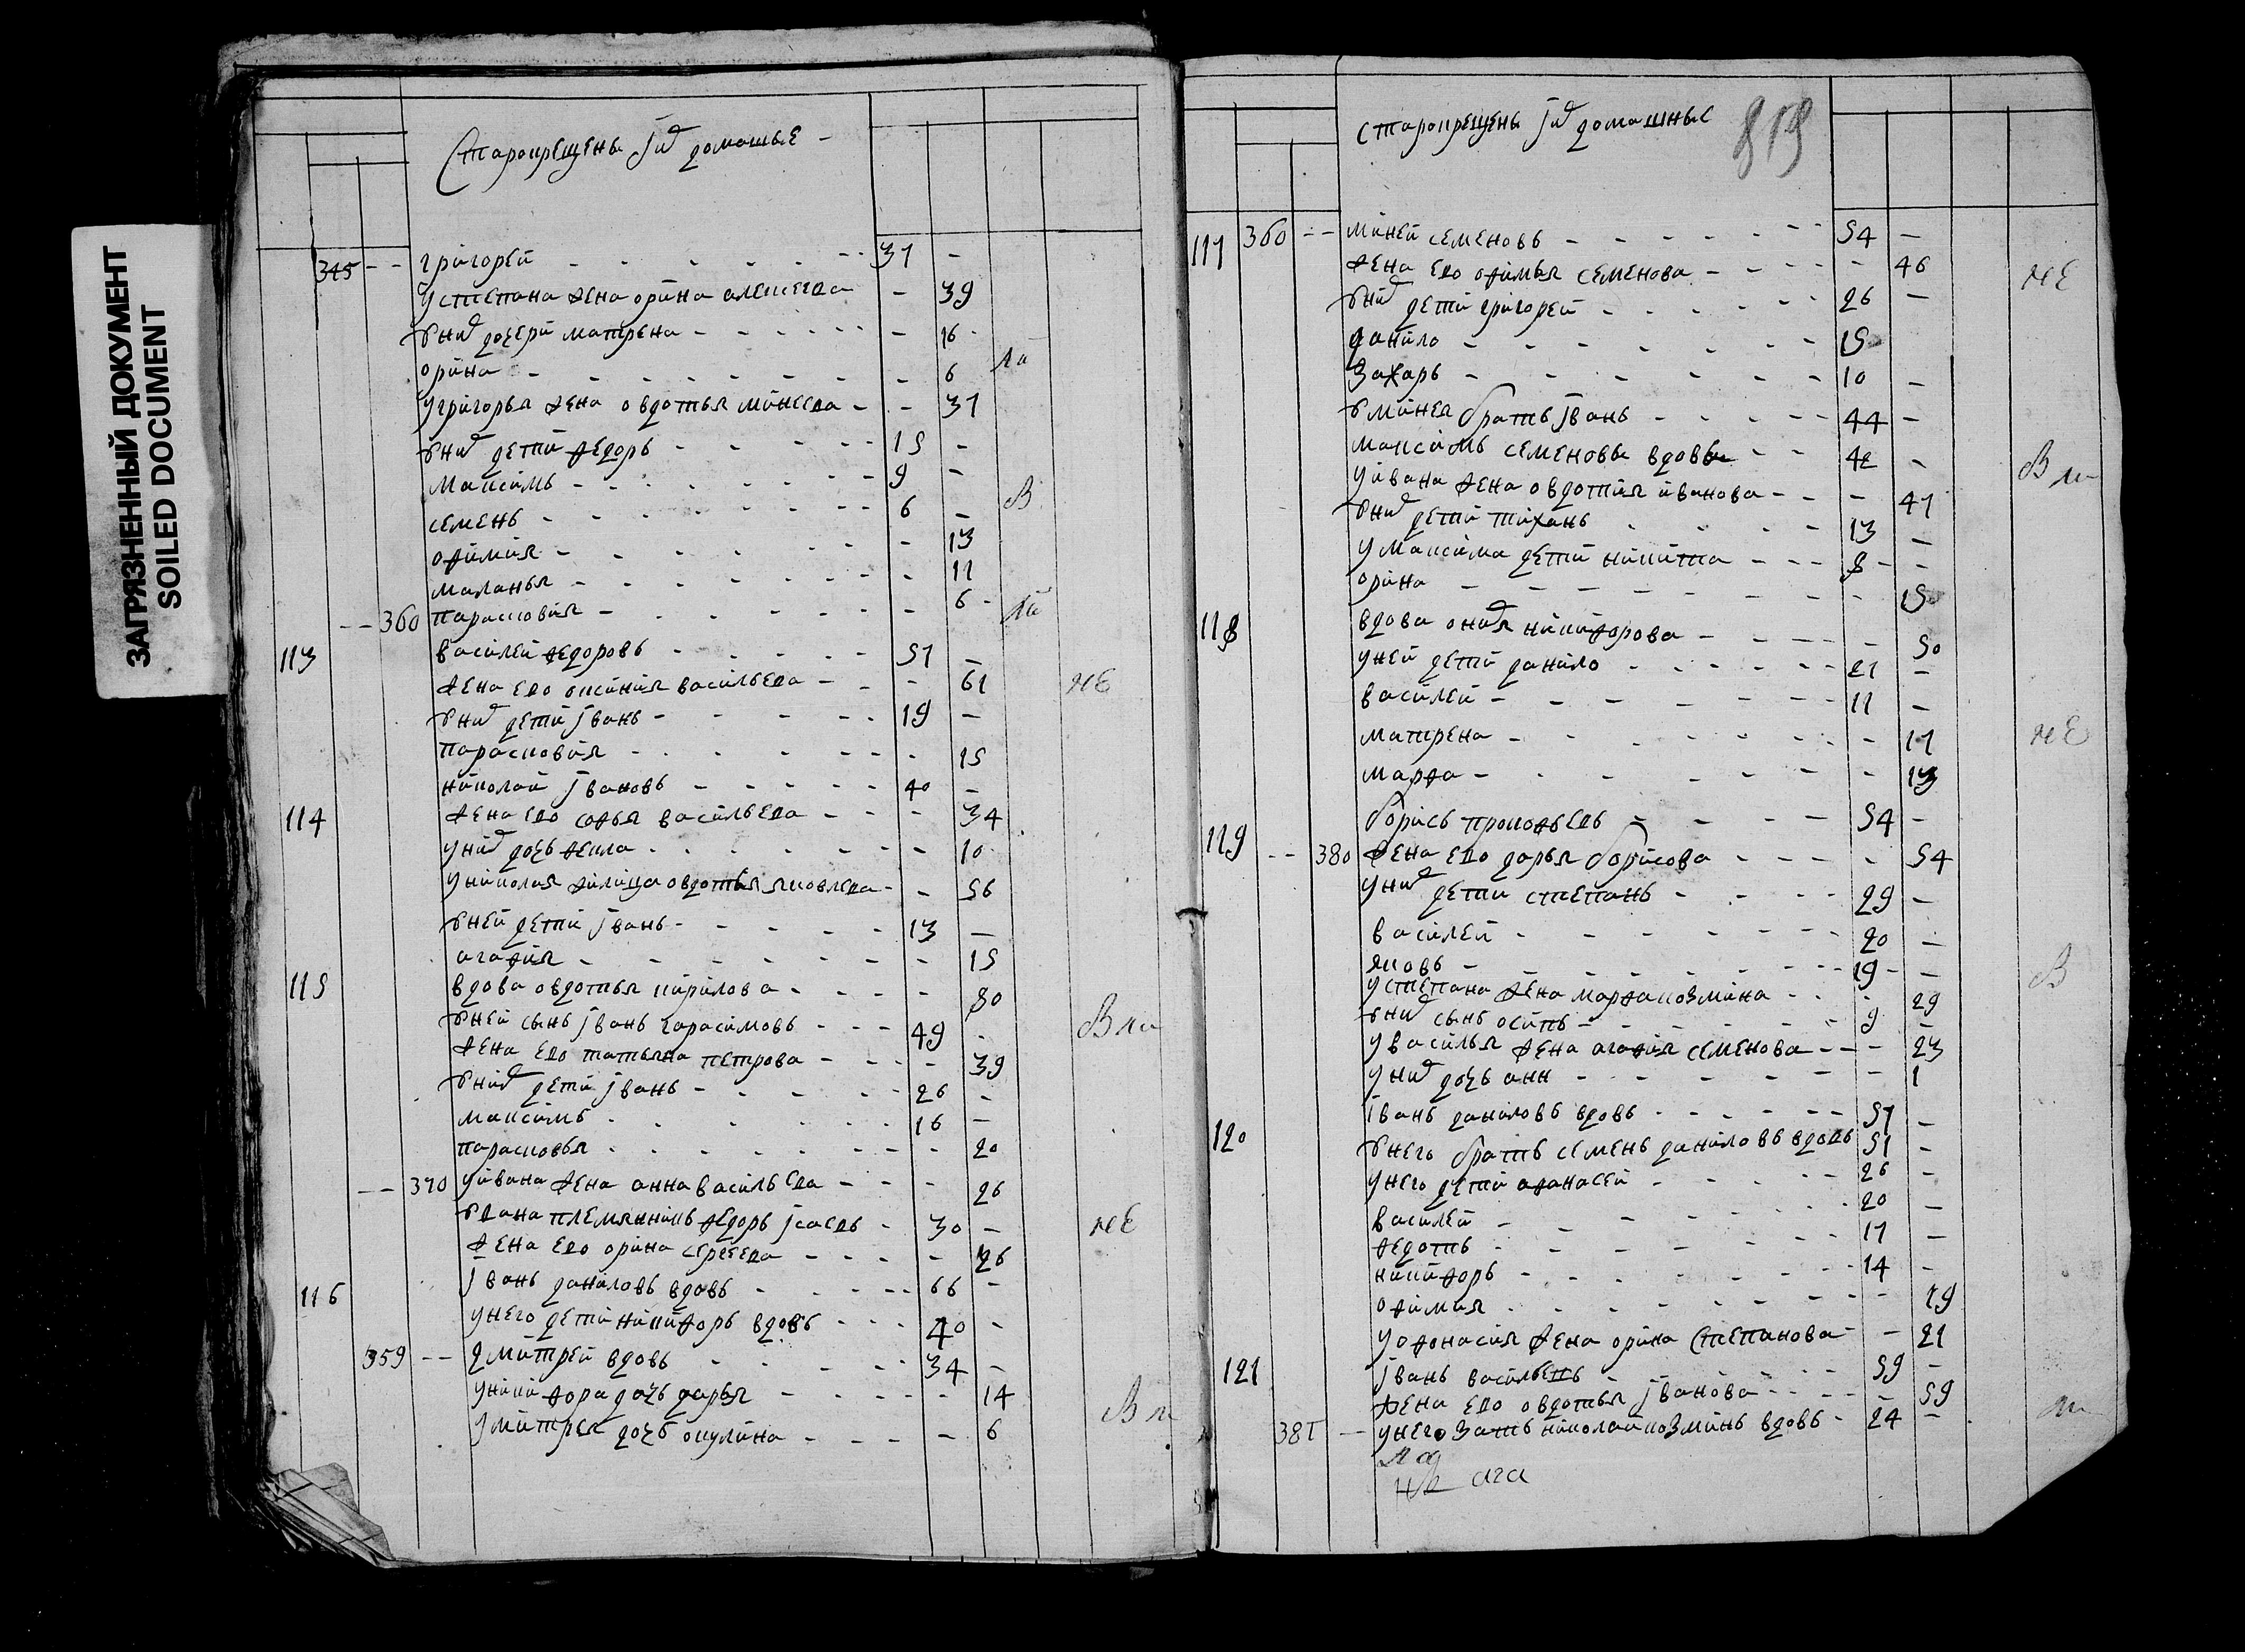 ЗАГРЯЗНЕННЫЙ ДОКУМЕНТ
SOILED DOCUMENT
Старокрещены їхъ домашые
345 григорей 37
у степана жена орина алексеева 39
у нихъ дочери матрена 16
орина 6
у григорья жена овдотья мӥнеева 37
у нихъ дети федоръ 15
максимъ 9
семенъ 6 в
офимия 13
маланья 11
360 парасковия 6
113 василей федоровъ 57
жена ево оксиния васильева 61 не
у нихъ дети їванъ 19
парасковия 15
николай ївановъ 40
114 жена ево софья васильева 34
у нихъ дочь фекла 10
у николая овдотья яковлева 56
у ней дети їванъ 13
агафия 15
115 вдова овдотья кирилова 80
у ней сынъ їванъ гарасимовъ 49
жена ево татьяна петрова 39
у нихъ дети їванъ 26
максимъ 16
парасковья 20
370 у ивана жена анна васильева 26
у вана племянникъ федоръ їсаевъ 30 не
жена ево орина сергеева 26
116 їванъ даниловъ вдовъ 66
у него дети никифоръ вдовъ 40
359 дмитрей вдовъ 34
у никифора дочь дарья 14
у митрея дочь окулина 6
старокрещены їхъ домашные
819
117 360 миней семеновъ 54
жена ево офимья семенова 46 не
у нихъ дети григорей 26
данило 15
захаръ 10
у минея братъ їванъ 44
максимъ семеновы вдовы 42
у ивана жена овдотия иванова 47
у нихъ дети тиханъ 13
у максима дети никита 8
орина 15
118 вдова никифорова 50
у ней дети данило 21
василей 11
матрена 17 не
марфа 13
борисъ прокофьевъ 54
119 380 жена ево дарья борисова 54
у нихъ дети степанъ 29
василей 20
яковъ 19 в
у степана жена марфа козмина 29
у нихъ сынъ осипъ 9
у василья жена агафия семенова 23
у нихъ дочь анн 1
їванъ даниловъ вдовъ 57
120 у него братъ семенъ даниловъ вдовъ 51
у него дети афанасей 26
василей 20
федотъ 17
никифоръ 14
офимия 19
у офонасия жена орина степанова 21
121 їванъ васильевъ 59
жена ево овдотья їванова 59
381 у него зять николай козминъ вдовъ 24
ага